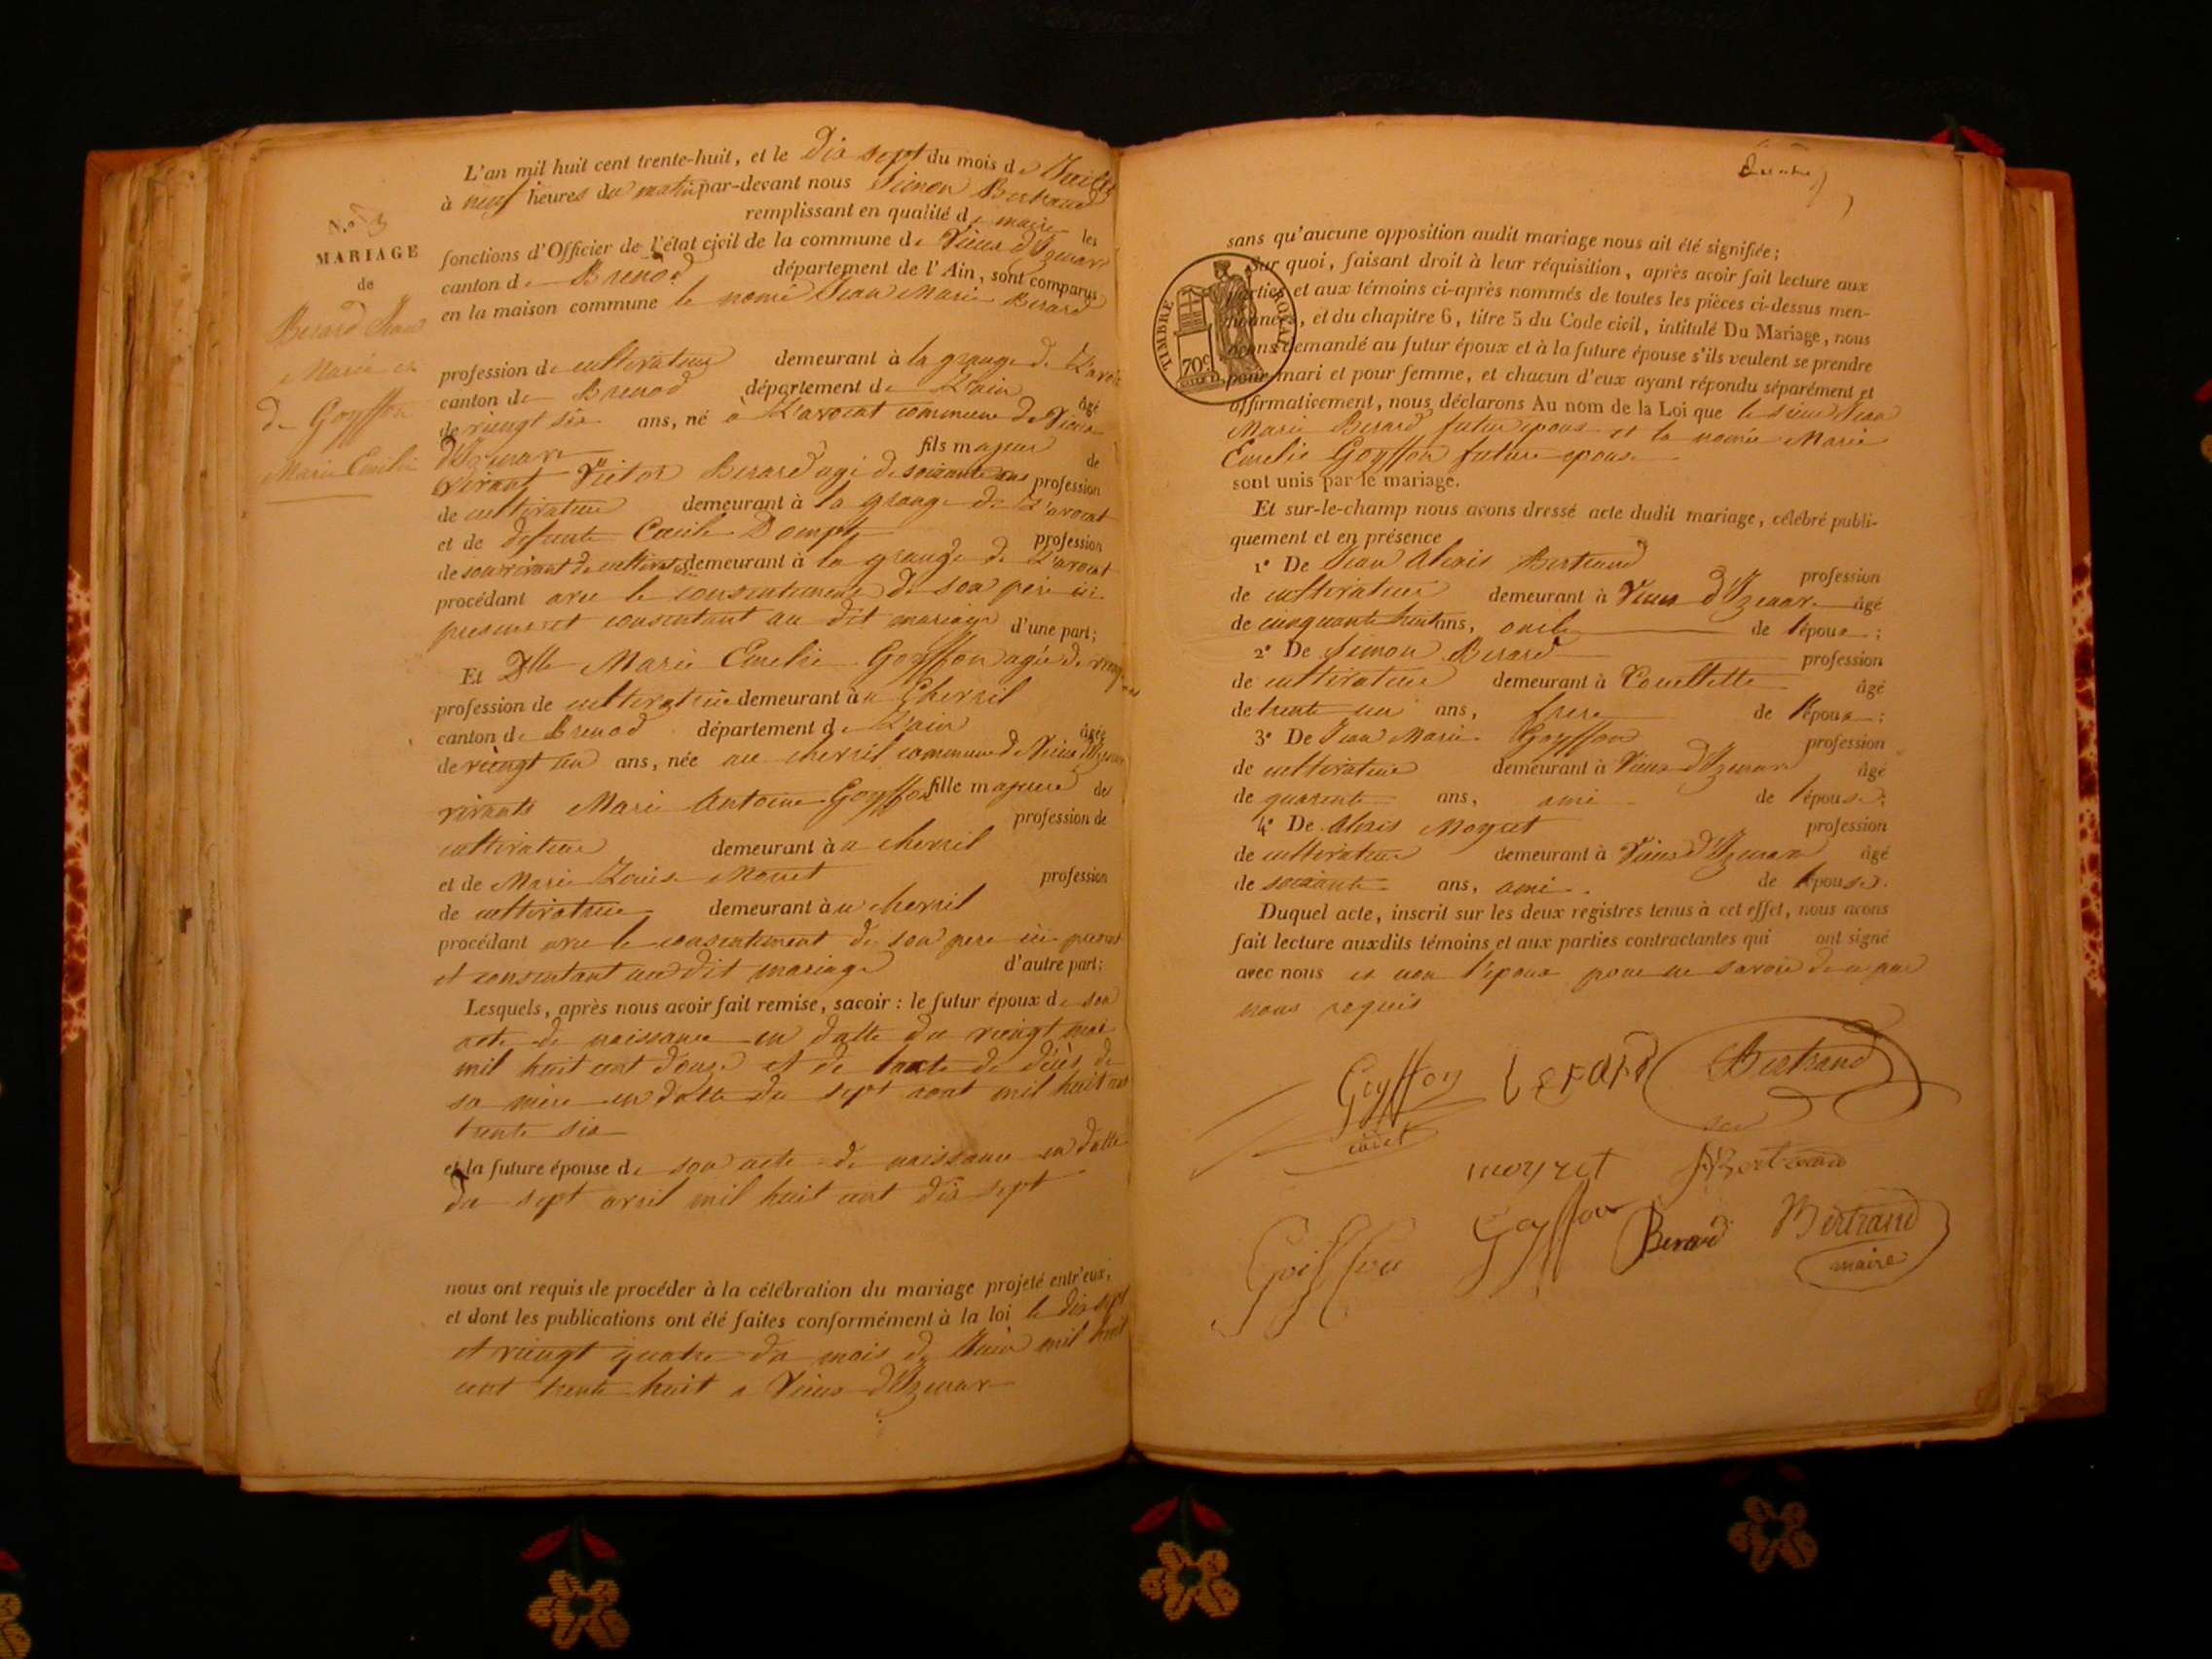 L'an mil huit cent trente-huit, et le Dix sept du mois de Juillet
à neuf heures du matin par-devant nous Simon Bertrand
remplissant en qualité de maire les
fonctions d'Officier de l'état civil de la commune de Vieux d'Izenave
canton de Brenod département de l'Ain, sont comparus
en la maison commune le nomé Jean Marie Berard
N.o 3
MARIAGE
de
Berard Jean
Marie et
de Goyffon
Marie Emelie
profession de cultivateur demeurant à la grange de L'avocat
canton de Brenod département de L'ain âgé
de vingt six ans, né à L'avocat commune de Vieux
d'Izenave fils majeur de
vivant Victor Berard agé de soixante ans profession
de cultivateur demeurant à la grange de L'avocat
et de defunte Cecile Dompt profession
de son vivant de cultivatrice demeurant à la grange de L'avocat
procédant avec le consentement de son pere ici
present et consentant au dit mariage d'une part;
Et Dlle Marie Emelie Goyffon agée de vingt
profession de cultivatrice demeurant à u Chevril
canton de Brenod département de L'ain âgée
de vingt un ans, née au chevril commune de Vieux d'Izenave
fille majeure des
vivants Marie Antoine Goyffon profession de
cultivateur demeurant à u chevril
et de Marie Louise Mouet profession
de cultivatrice demeurant à u chevril
procédant avec le consentement de son pere ici present
et consentant au dit mariage d'autre part;
Lesquels, après nous avoir fait remise, savoir : le futur époux de son
acte de naissance en datte du vingt mai
mil huit cent douze et de l'acte de décès de
sa mère en datte du sept aout mil huit cent
trente six
et la future épouse de son acte de naissance en datte
du sept avril mil huit cent dix sept
nous ont requis de procéder à la célébration du mariage projeté entr'eux,
et dont les publications ont été faites conformément à la loi le dix sept
et vingt quatre du mois de Juin mil huit
cent trente huit a Vieux d'Izenave
sans qu'aucune opposition audit mariage nous ait été signifiée;
TIMBRE ROYAL
70c
Sur quoi, faisant droit à leur réquisition, après avoir fait lecture aux
parties et aux témoins ci-après nommés de toutes les pièces ci-dessus men-
tionnées, et du chapitre 6, titre 5 du Code civil, intitulé Du Mariage, nous
avons demandé au futur époux et à la future épouse s'ils veulent se prendre
pour mari et pour femme, et chacun d'eux ayant répondu séparément et
affirmativement, nous déclarons Au nom de la Loi que le sieur Jean
Marie Berard futur epoux et la nomée Marie
Emelie Goyffon future epouse
sont unis par le mariage.
Et sur-le-champ nous avons dressé acte dudit mariage, célébré publi-
quement et en présence
1° De Jean Alexis Bertrand profession
de cultivateur demeurant à Vieux d'Izenave âgé
de cinquante huit ans, oncle de l'époux ;
2° De Simon Berard profession
de cultivateur demeurant à Couellette âgé
de trente un ans, frere de l'époux ;
3° De Jean Marie Goyffon profession
de cultivateur demeurant à Vieux d'Izenave âgé
de quarente ans, ami de l'épouse;
4° De Alexis Moyret profession
de cultivateur demeurant à Vieux d'Izenave âgé
de soixante ans, ami de l'épouse.
Duquel acte, inscrit sur les deux registres tenus à cet effet, nous avons
fait lecture auxdits témoins et aux parties contractantes qui ont signé
avec nous et non l'epoux pour ne savoir de ce par
nous requis
Goyffon berard Bertrand
cadet
moyret Bertrand
Goiffon Goyffon Berard Bertrand
maire